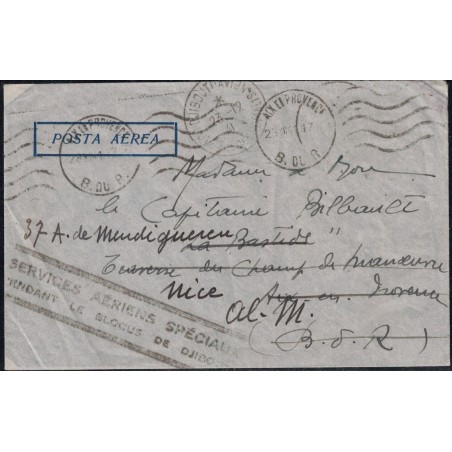 POSTA AÉREA
AIX EN PROVENCE
B. DU R.
AIX EN PROVENCE
B. DU R.
Madame
le Capitaine Bilbault
37 A. de
"La Bastide"
Traverse du Champ de Manœuvre
Nice Aix en Provence
Al. M.
(B. d. R)
SERVICES AÉRIENS SPÉCIAUX
PENDANT LE BLOCUS DE DJIBO